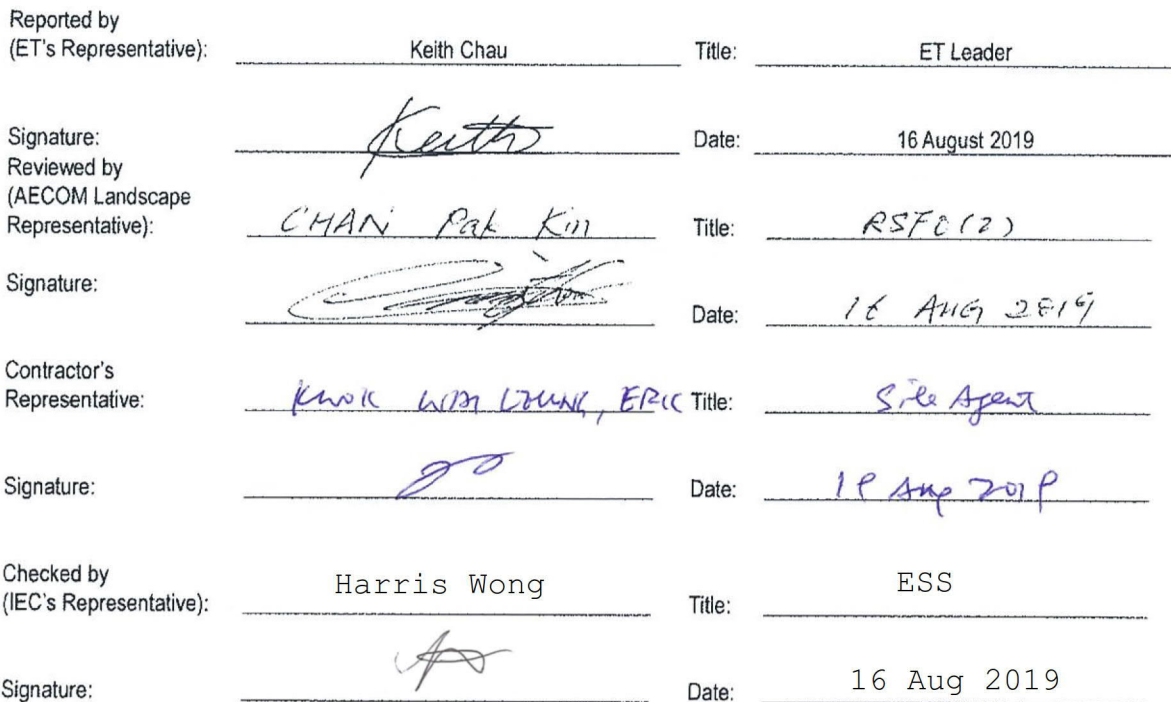 Reported by
(ET's Representative): Keith Chau Title: ET Leader
Signature: Keith Date: 16 August 2019
Reviewed by
(AECOM Landscape
Representative): CHAN Pak Kin Title: RSFO(2)
Signature: Date: 16 AUG 2019
Contractor's
Representative: KWOK WAI LEUNG, ERIC Title: Site Agent
Signature: Date: Aug 2019
Checked by
(IEC's Representative): Harris Wong Title: ESS
Signature: Date: 16 Aug 2019